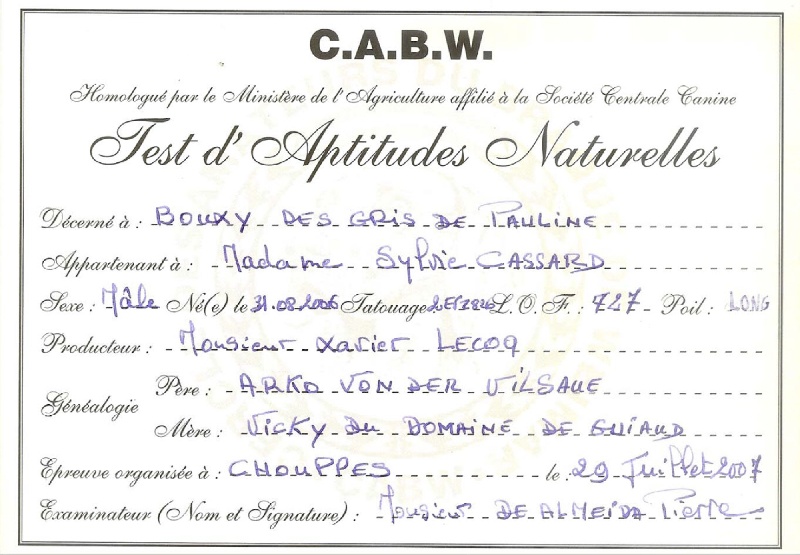 C.A.B.W.
Homologué par le Ministère de l'Agriculture affilié à la Société Centrale Canine
Test d'Aptitudes Naturelles
Décerné à : BOUXY DES GRIS DE PAULINE
Appartenant à : Madame Sylvie CASSARD
Sexe : Mâle Né(e) le 31.08.2006 Tatouage : L.O.F. : 727 Poil : LONG
Producteur : Monsieur Xavier LECOQ
Généalogie
Père : ARKO VON DER VILSAUE
Mère : VICKY DU DOMAINE DE GUIAUD
Epreuve organisée à : CHOUPPES le : 29 Juillet 2007
Examinateur (Nom et Signature) : Monsieur DE ALMEIDA Pierre